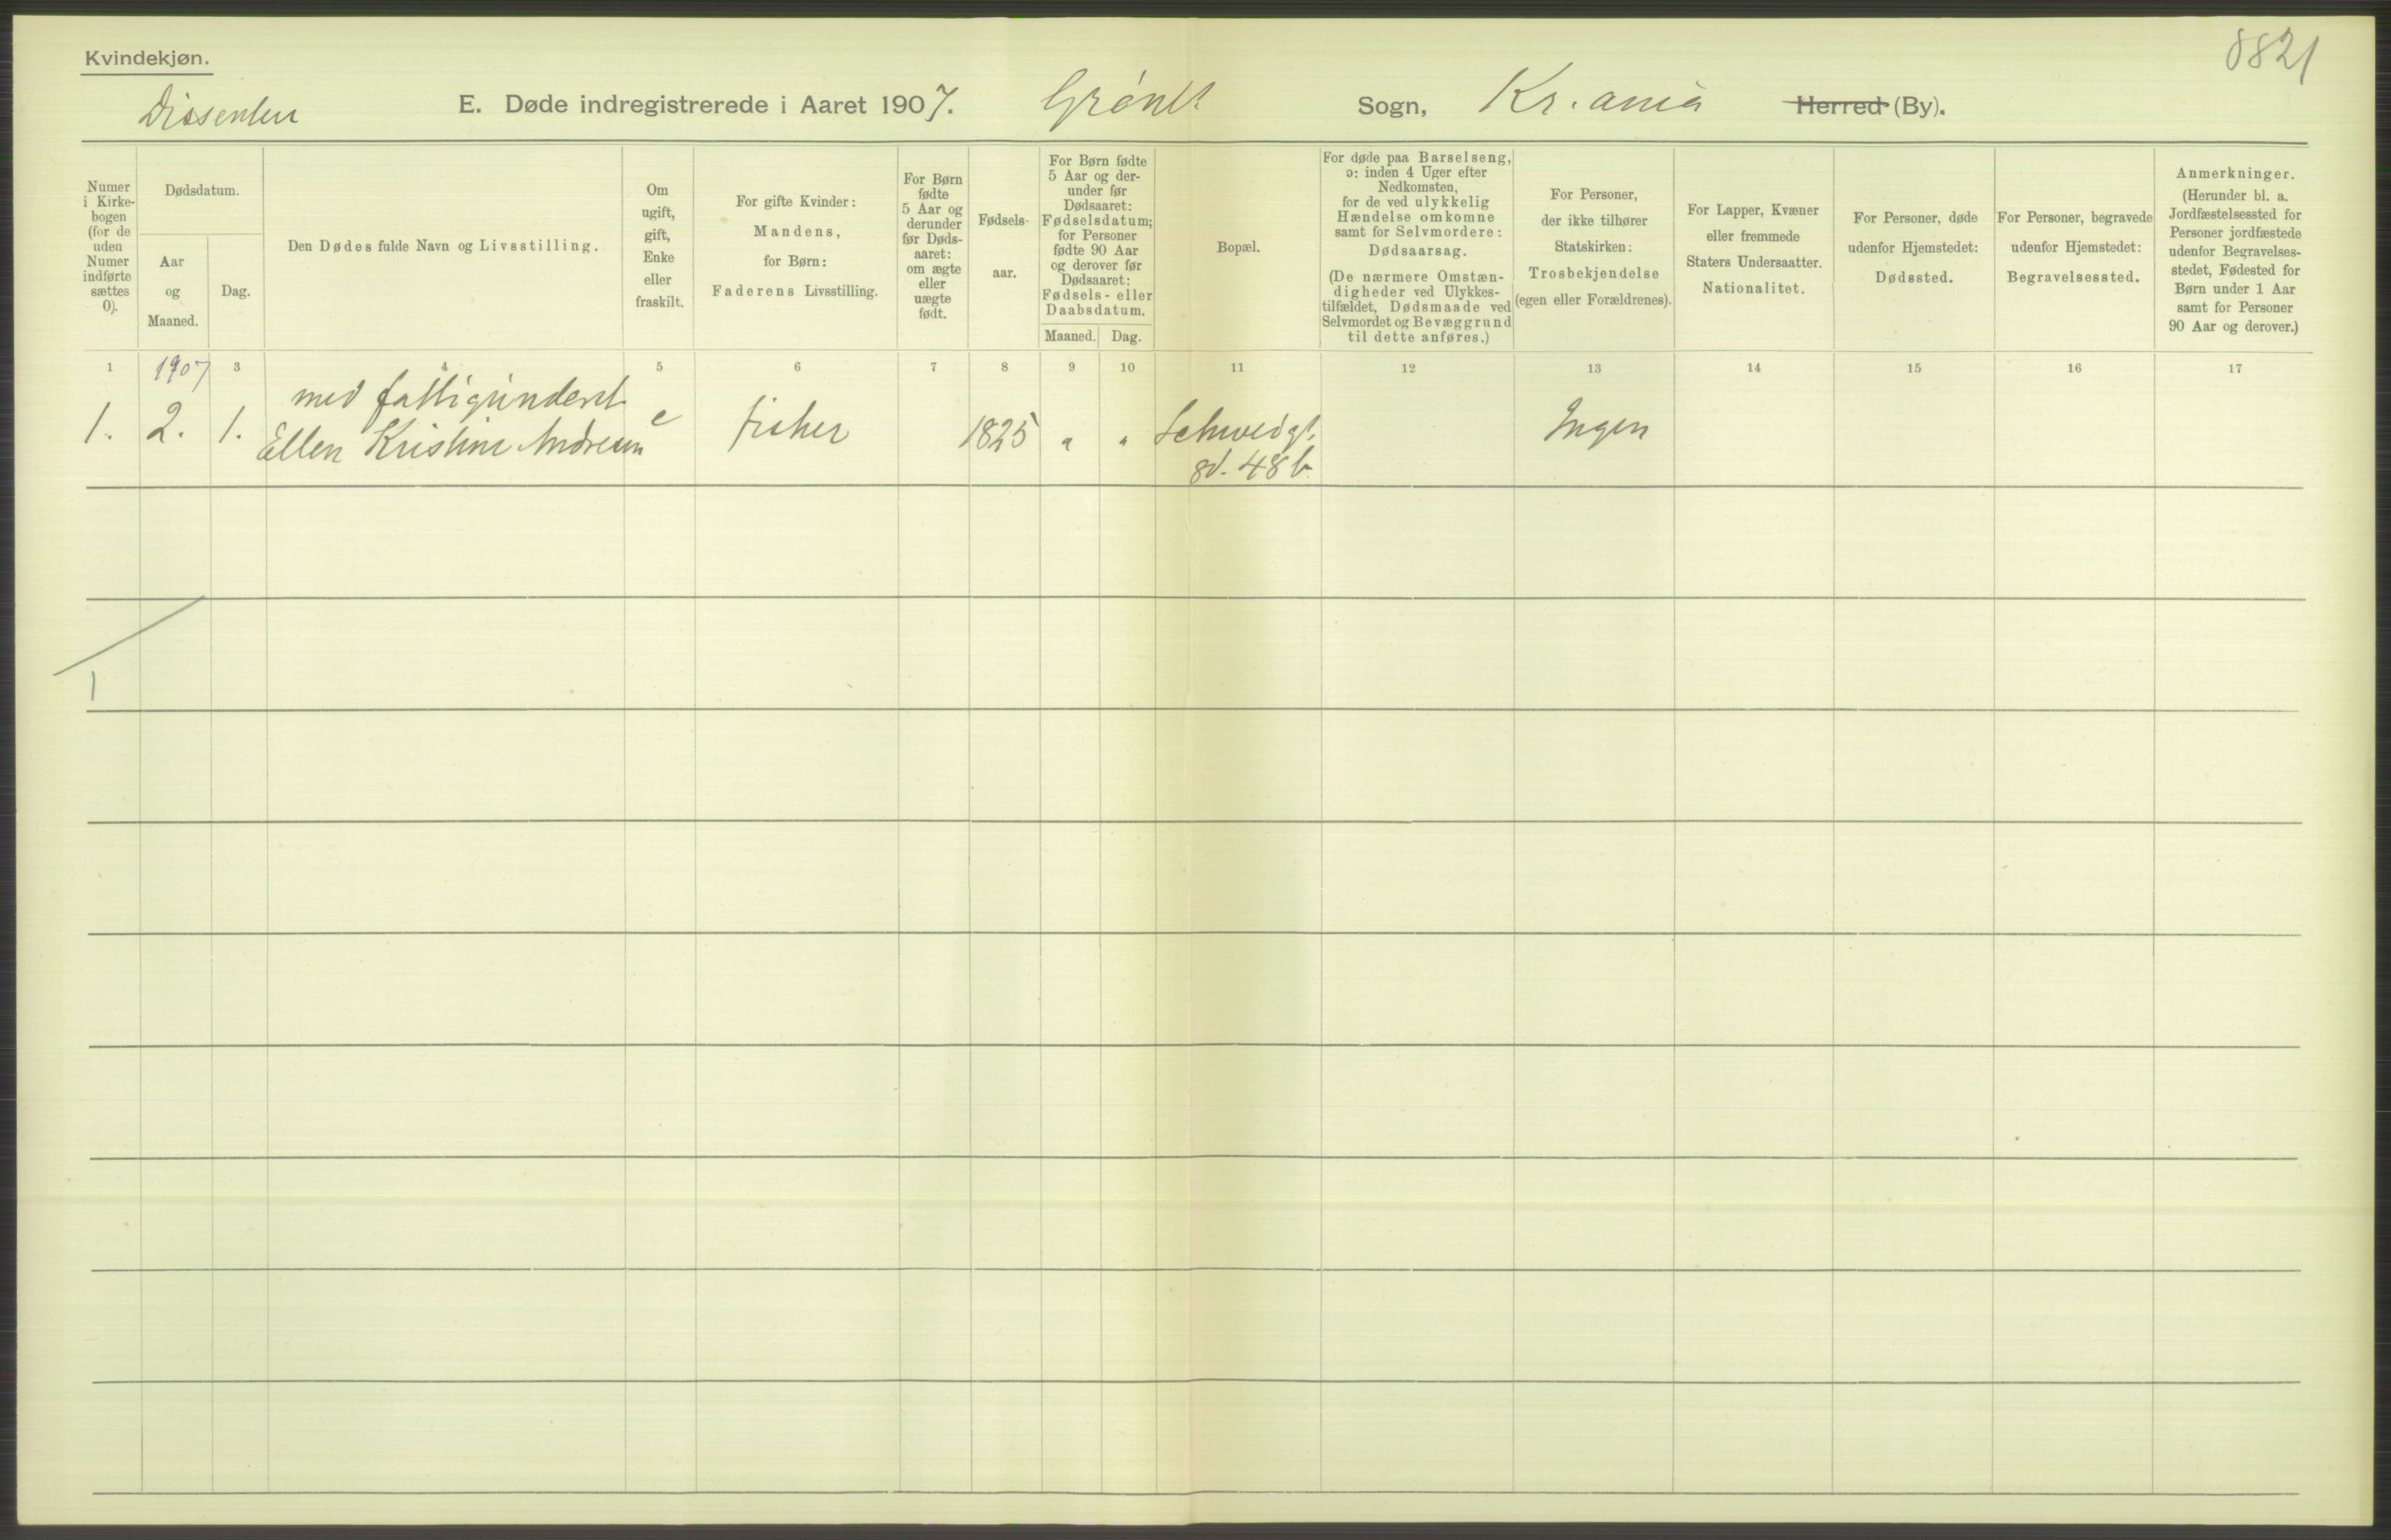 Kvindekjøn.
8821
Dissenter
E. Døde indregistrerede i Aaret 1907. Grønl. Sogn, Kr.ania Herred (By).
Numer i Kirkebogen (for de uden Numer indførte sættes 0).
Dødsdatum.
Aar og Maaned.
Dag.
Den Dødes fulde Navn og Livsstilling.
Om ugift, gift, Enke eller fraskilt.
For gifte Kvinder: Mandens, for Børn: Faderens Livsstilling.
For Børn fødte 5 Aar og derunder før Dødsaaret: om ægte eller uægte født.
Fødselsaar.
For Børn fødte 5 Aar og derunder før Dødsaaret: Fødselsdatum; for Personer fødte 90 Aar og derover før Dødsaaret: Fødsels- eller Daabsdatum.
Maaned. Dag.
Bopæl.
For døde paa Barselseng, ɔ: inden 4 Uger efter Nedkomsten, for de ved ulykkelig Hændelse omkomne samt for Selvmordere: Dødsaarsag.
(De nærmere Omstændigheder ved Ulykkestilfældet, Dødsmaade ved Selvmordet og Bevæggrund til dette anføres.)
For Personer, der ikke tilhører Statskirken: Trosbekjendelse (egen eller Forældrenes).
For Lapper, Kvæner eller fremmede Staters Undersaatter. Nationalitet.
For Personer, døde udenfor Hjemstedet: Dødssted.
For Personer, begravede udenfor Hjemstedet: Begravelsessted.
Anmerkninger.
(Herunder bl. a. Jordfæstelsessted for Personer jordfæstede udenfor Begravelsesstedet, Fødested for Børn under 1 Aar samt for Personer 90 Aar og derover.)
1 1907 3 4 5 6 7 8 9 10 11 12 13 14 15 16 17
med fattigunderst.
1. 2. 1. Ellen Kristine Andresen e fisker 1825 " " Schweigt. Ingen
gd. 48 b.
1